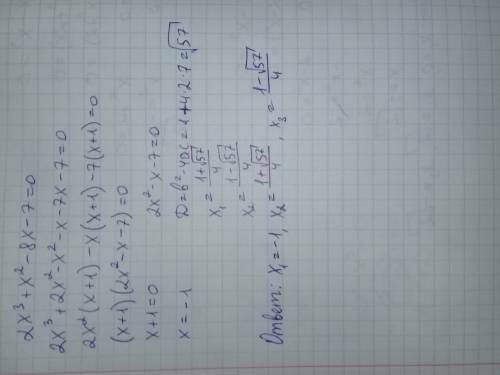 2x³+x²-8x-7=0
2x³+2x²-x²-x-7x-7=0
2x²(x+1)-x(x+1)-7(x+1)=0
(x+1)(2x²-x-7)=0
x+1=0 2x²-x-7=0
x=-1 D=b²-4ac=1+4·2·7=√57
x₁=(1+√57)/4
x₂=(1-√57)/4
Ответ: x₁=-1, x₂=(1+√57)/4, x₃=(1-√57)/4